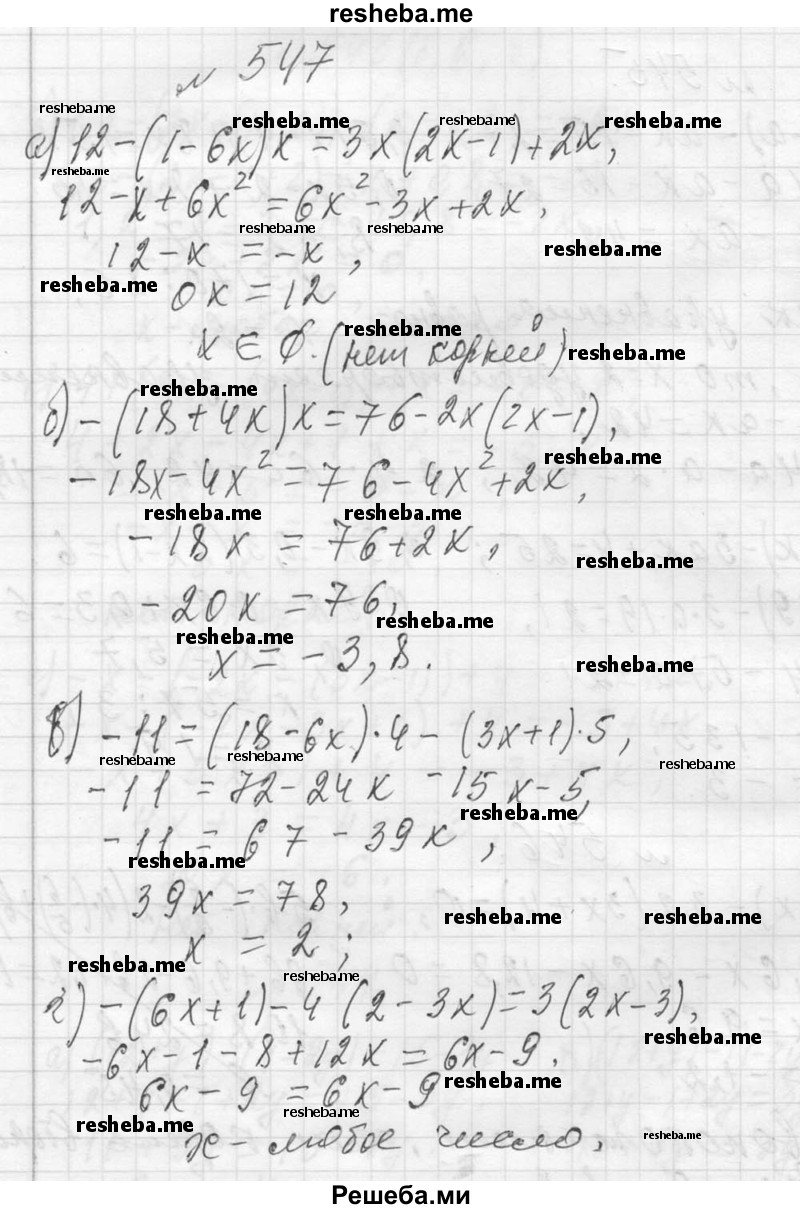 resheba.me
№ 547
resheba.me
resheba.me resheba.me resheba.me
а) 12-(1-6x)x=3x(2x-1)+2x,
resheba.me
12-x+6x²=6x²-3x+2x,
resheba.me resheba.me
12-x=-x,
resheba.me
resheba.me
0x=12
resheba.me
x∈∅.(нет корней)
resheba.me
resheba.me
б) -(18+4x)x=76-2x(2x-1),
resheba.me
-18x-4x²=76-4x²+2x,
resheba.me resheba.me
-18x=76+2x,
resheba.me
-20x=76,
resheba.me
resheba.me
x=-3,8.
resheba.me
в) -11=(18-6x)·4-(3x+1)·5,
resheba.me resheba.me resheba.me
-11=72-24x-15x-5,
resheba.me
-11=67-39x,
resheba.me
39x=78,
resheba.me resheba.me
x=2;
resheba.me resheba.me
г) -(6x+1)-4(2-3x)=3(2x-3),
resheba.me
-6x-1-8+12x=6x-9.
resheba.me
6x-9=6x-9
resheba.me resheba.me
x-любое число,
resheba.me
Решеба.ми